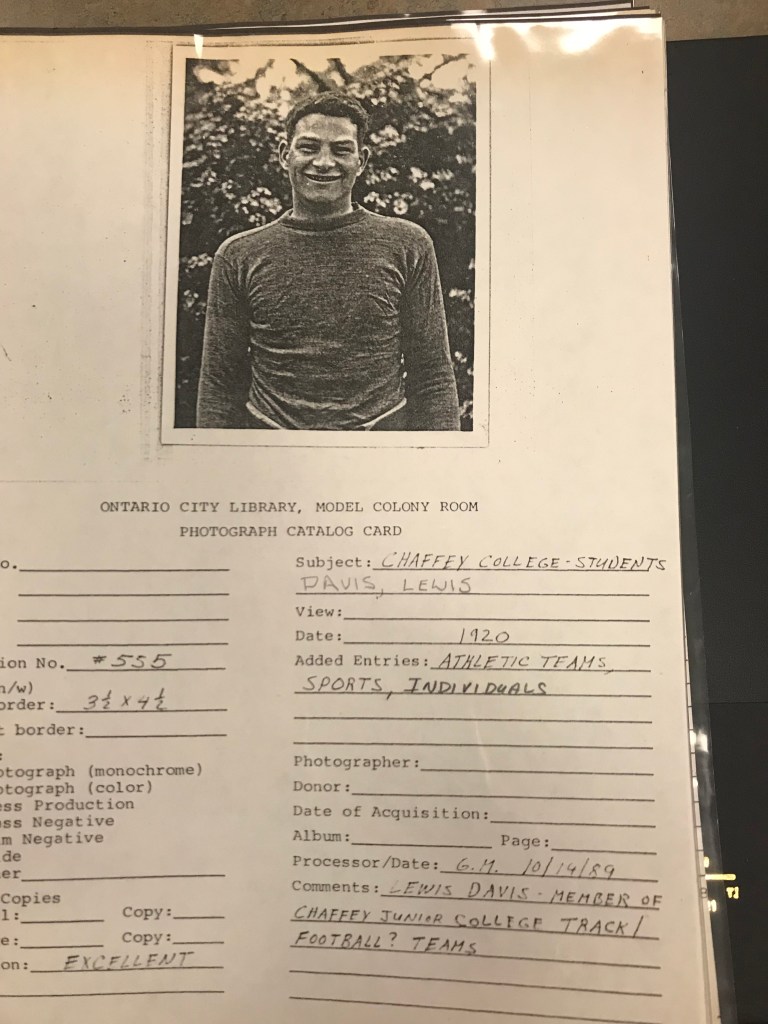 ONTARIO CITY LIBRARY, MODEL COLONY ROOM
PHOTOGRAPH CATALOG CARD
o.
ion No. #555
h/w)
order: 3½ x 4½
t border:
:
otograph (monochrome)
otograph (color)
ess Production
ass Negative
m Negative
de
er
Copies
l: Copy:
e: Copy:
on: EXCELLENT
Subject: CHAFFEY COLLEGE-STUDENTS
DAVIS, LEWIS
View:
Date: 1920
Added Entries: ATHLETIC TEAMS,
SPORTS, INDIVIDUALS
Photographer:
Donor:
Date of Acquisition:
Album: Page:
Processor/Date: G.M. 10/14/89
Comments: LEWIS DAVIS - MEMBER OF
CHAFFEY JUNIOR COLLEGE TRACK/
FOOTBALL? TEAMS